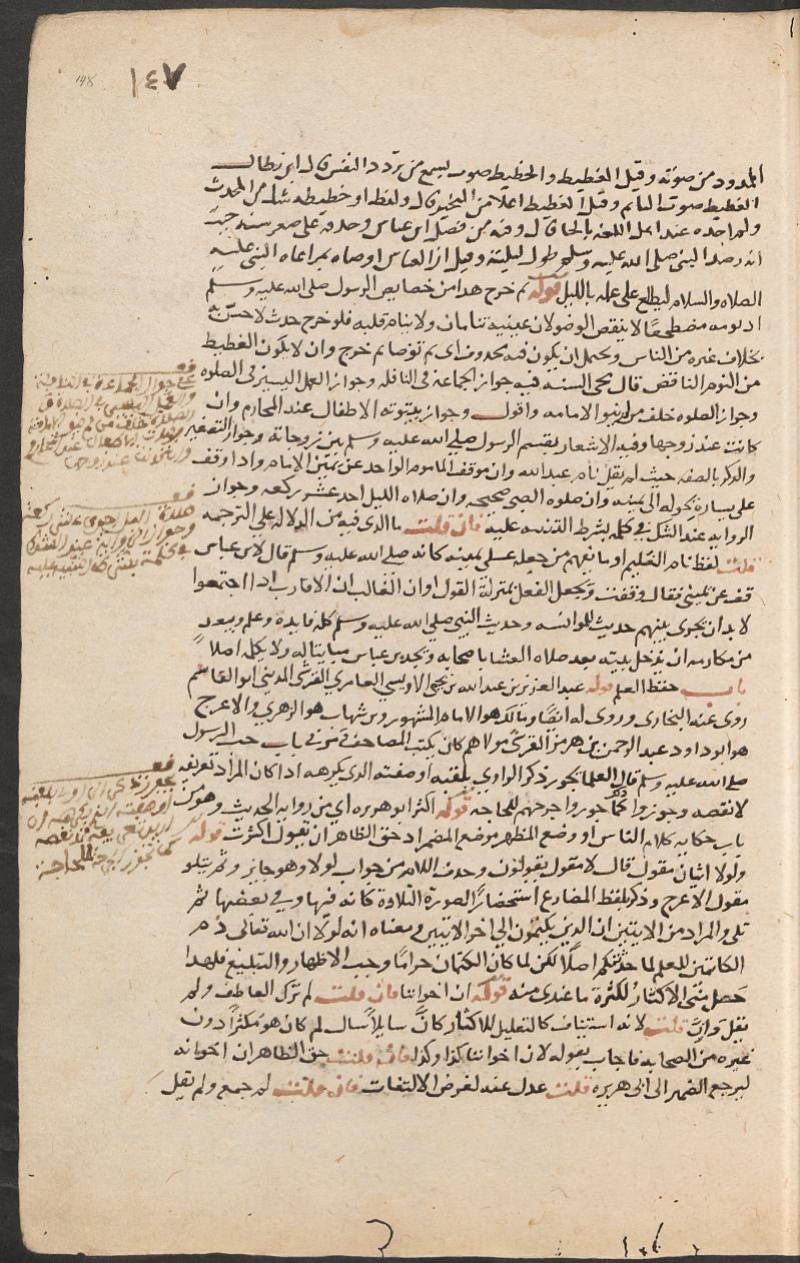 ١٤٧
148
الممدود من صوته وقيل الغطيط والخطيط صوت يسمع من تردد النفس قال ابن بطال
الغطيط صوت النائم وقيل الغطيط اعلا من النخير قال ولفظ او خطيطه شك من المحدث
ولم اجده عند اهل اللغة بالخا قال وفيه من فضل ابن عباس وحذقه على صغر سنه حيث
انه رصد النبي صلى الله عليه وسلم طول ليلته وقيل ان العباس اوصاه بمراعاه النبي عليه
الصلاه والسلام ليطلع على عمله بالليل قوله ثم خرج هذا من خصايص الرسول صلى الله عليه وسلم
اذ نومه مضطجعا لا ينقض الوضو لان عينيه تنامان ولا ينام قلبه فلو خرج حدث لاحس به
بخلاف غيره من الناس ويحتمل ان يكون فيه محذوف اى ثم توضا ثم خرج وان لا يكون الغطيط
من النوم الناقض قال محى السنه فيه جواز الجماعة في النافله وجواز العمل اليسير في الصلوه
وجواز الصلوه خلف من لم ينو الامامه واقول وجواز بيتوته الاطفال عند المحارم وان
كانت عند زوجها وفيه الاشعار بقسم الرسول صلى الله عليه وسلم بين زوجاته وجواز التصغير
والذكر بالصفه حيث لم يقل نام عبد الله وان موقف الماموم الواحد عن يمين الامام واذا وقف
على يساره يحوله الى يمينه وان صلوه الصبى صحيحه وان صلاه الليل احد عشر ركعه وجواز
الروايه عند الشك في كلمه بشرط التنبيه عليه فان قلت ما الذى فيه من الدلاله على الترجمه
قلت لفظ نام الغليم او ما يفهم من جعله على يمينه كانه صلى الله عليه وسلم قال لابن عباس
قف عن يمينى فقال وقفت ويجعل الفعل بمنزلة القول او ان الغالب ان الاقارب اذا اجتمعوا
لا بد ان يجرى بينهم حديث للموانسه وحديث النبي صلى الله عليه وسلم كله فايده وعلم ويبعد
من مكارمه ان يدخل بيته بعد صلاه العشا باصحابه ويجد ابن عباس مبايتا له ولا يكلمه اصلا
باب حفظ العلم قوله عبد العزيز بن عبد الله بن يحيى الاويسي العامري القرشي المدنى ابو القاسم
روى عنه البخارى وروى له ايضا ومالك هو الامام المشهور وبن شهاب هو الزهري والاعرج
هو ابو داود عبد الرحمن بن هرمز القرشي مولاهم كان يكتب المصاحف مر في باب حب الرسول
صلى الله عليه وسلم قال العلما يجوز ذكر الراوي بلقبه او صفته الذى يكرهه اذا كان المراد تعريفه
لا نقصه وجوزوا كما جوزوا جرحهم للحاجه قوله اكثر ابو هريره اي من روايه الحديث وهو من
باب حكايه كلام الناس او وضع المظهر موضع المضمر اذ حق الظاهر ان يقول اكثرت قوله
ولولا ايتان مقول قال لا مقول يقولون وحذف اللام من جواب لولا وهو جايز وثم يتلو
مقول الاعرج وذكر بلفظ المضارع استحضارا لصورة التلاوة كانه فيها وفي بعضها ثم
تلى والمراد من الايتين ان الذين يكتمون الى اخر الايتين ومعناه انه لولا ان الله تعالى ذم
الكاتمين للعلم لما حدثتكم اصلا لكن لما كان الكتمان حراما وجب الاظهار والتبليغ فلهذا
حصل مني الاكثار لكثرة ما عندى منه قوله ان اخواننا فان قلت لم ترك العاطف ولم
يقل وان قلت لانه استيناف كالتعليل للاكثار كان سايلا سال لم كان هو مكثرا دون
غيره من الصحابه فاجاب بقوله لان اخواننا كذا وكذا فان قلت حق الظاهر ان اخوانه
ليرجع الضمير الى ابى هريره قلت عدل عنه لغرض الالتفات فان قلت لم جمع ولم يقل